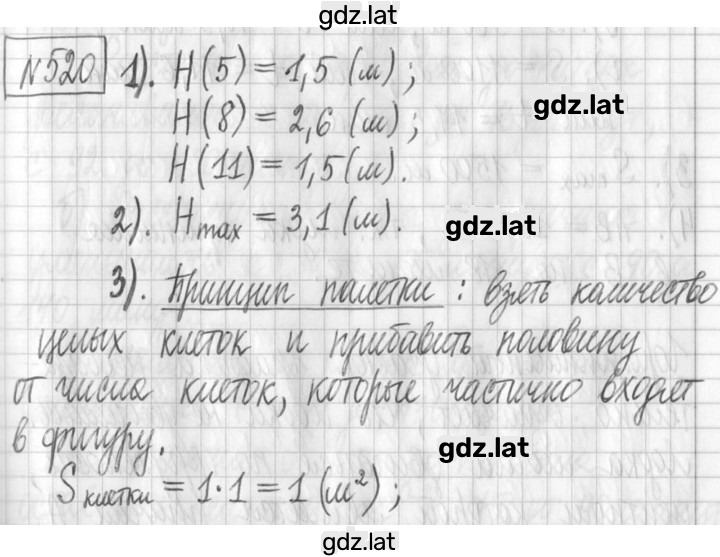 gdz.lat
№520 1). H(5) = 1,5 (м);
gdz.lat
H(8) = 2,6 (м);
H(11) = 1,5 (м).
2). Hmax = 3,1 (м).
gdz.lat
3). Принцип палетки: взять количество
целых клеток и прибавить половину
от числа клеток, которые частично входят
в фигуру.
gdz.lat
S клетки = 1·1 = 1 (м²);
gdz.lat